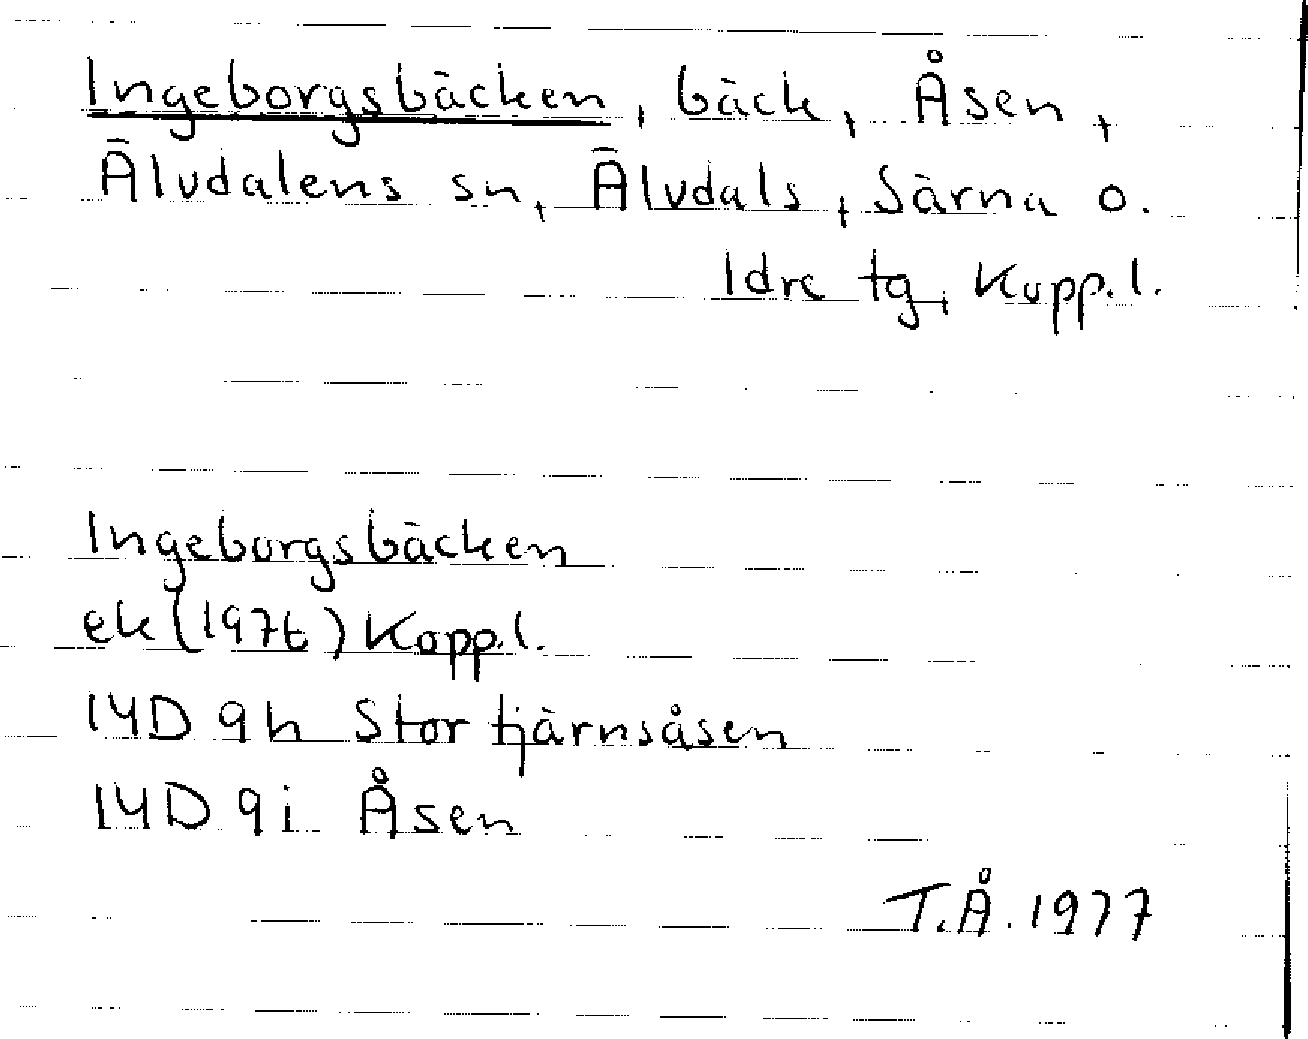 Ingeborgsbäcken, bäck, Åsen,
Älvdalens sn, Älvdals, Särna o.
Idre tg, Kopp.l.
Ingeborgsbäcken
ek (197t) Kopp.l.
14D 9h Stortjärnsåsen
14D 9i Åsen
T.Å. 1977